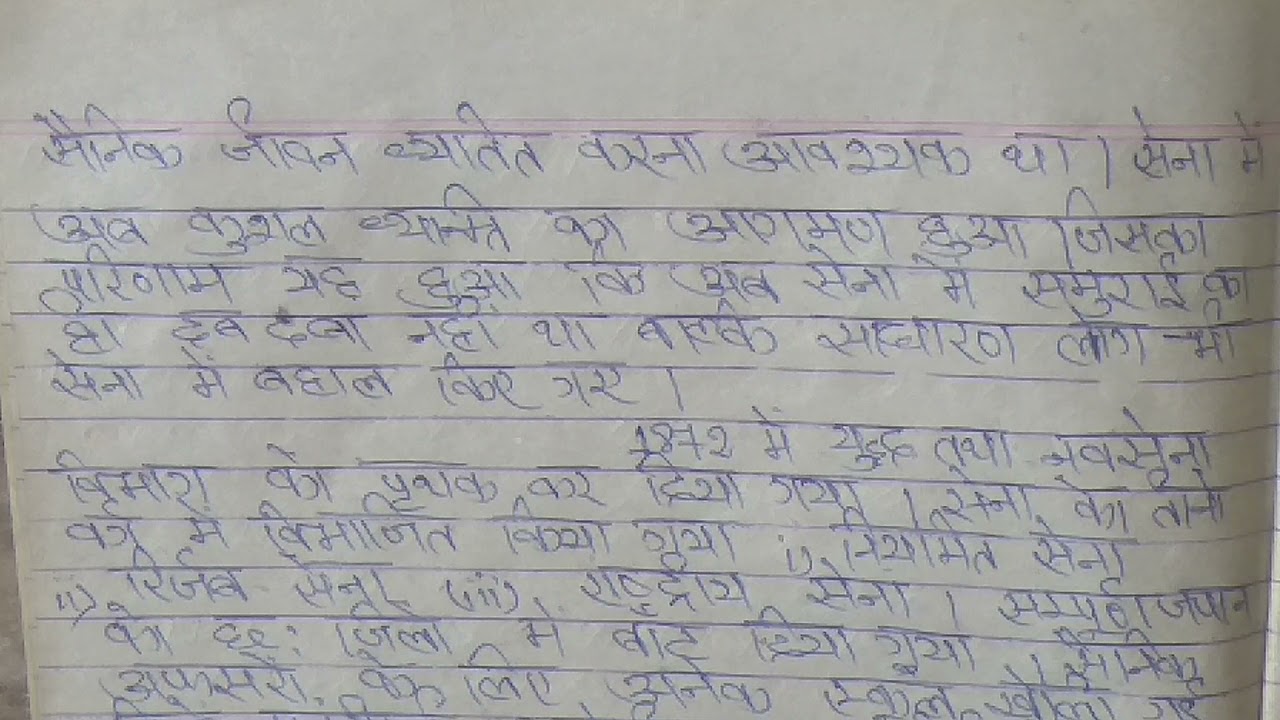 सैनिक जीवन व्यतित करना आवश्यक था। सेना मे
अब कुशल व्यक्ति का आगमण हुआ। जिसका
परिणाम यह हुआ कि अब सेना मे समुराई का
ही दबदबा नहीं था बल्कि साधारण लोग भी
सेना में बहाल किए गए।
1872 में युद्ध तथा नवसेना
विभाग को पृथक कर दिया गया। सेना को तीन
वर्ग में विभाजित किया गया i) नियमित सेना
ii) रिजर्व सेना, (iii) राष्ट्रीय सेना। सम्पूर्ण जपान
को छह: जिलों में बाट दिया गया। सैनिक
अफसरों के लिए अनेक स्कूल खोला गए